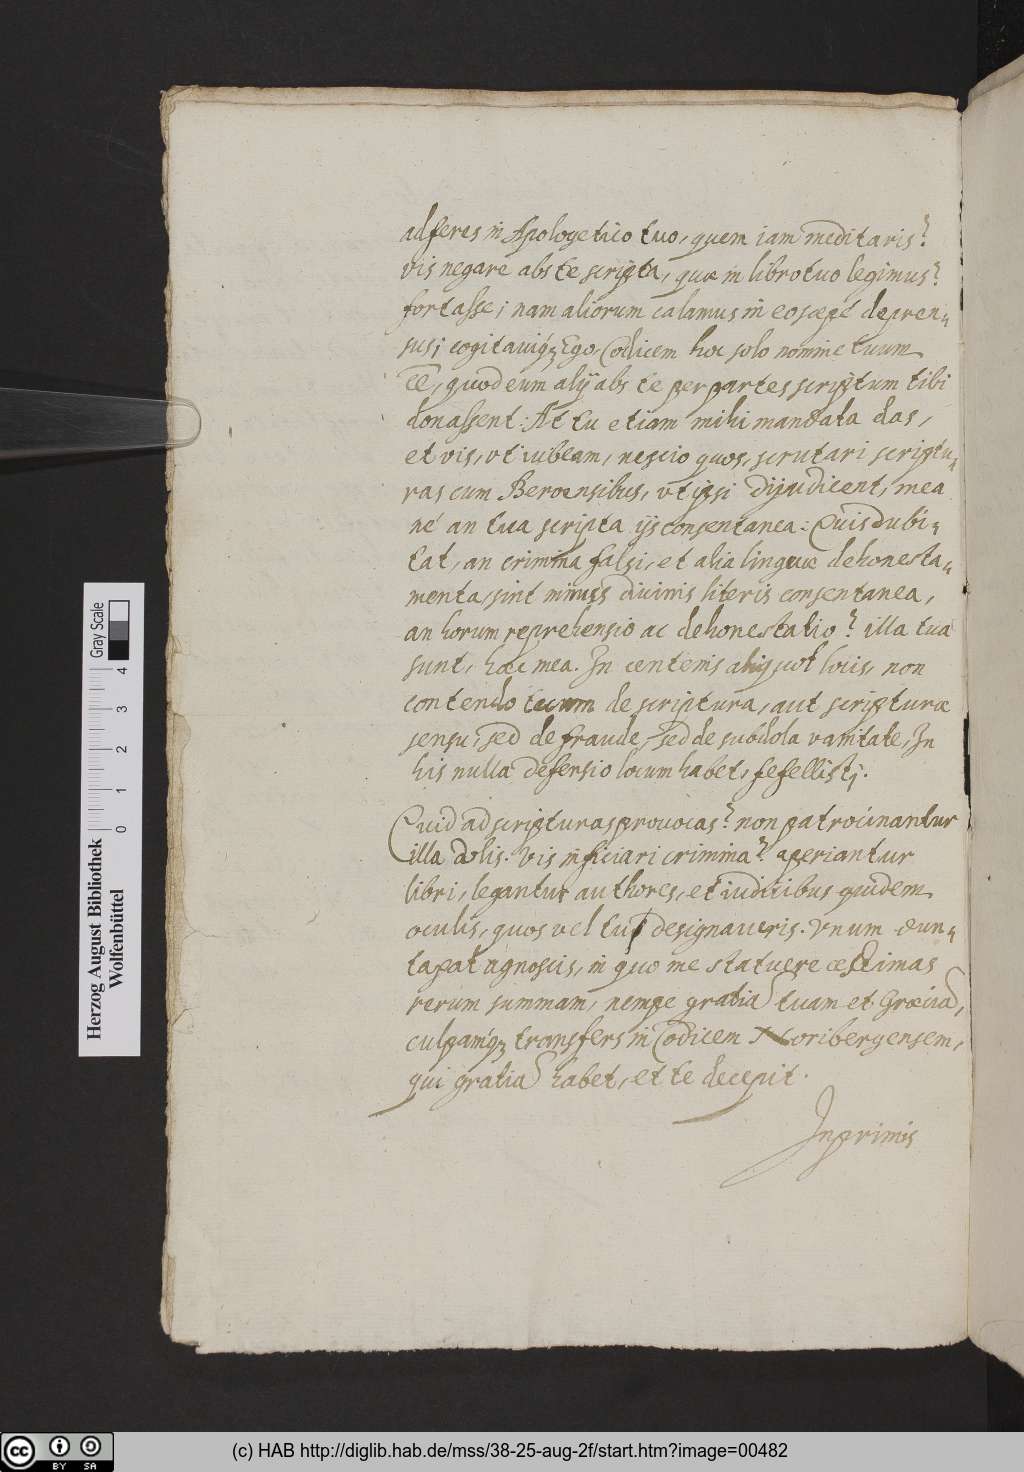 adferes in Apologetico tuo, quem iam meditaris?
vis negare abs te scripta, quæ in libro tuo legimus?
fortasse; nam aliorum calamus in eo sæpe depren=
sus; cogitauiq; Ego, Codicem hoc solo nomine tuum
eē, quod eum alij abs te per partes scriptum tibi
donassent: At tu etiam mihi mandata das,
et vis, vt iubeam, nescio quos, scrutari scriptu=
ras cum Beroensibus, vt ipsi dijudicent, mea
né an tua scripta ijs consentanea: Quis dubi=
tat, an crimina falsi, et alia linguæ dehonesta=
menta, sint minus diuinis literis consentanea,
an horum reprehensio ac dehonestatio? illa tua
sunt, hæc mea. In centenis aliquot locis, non
contendo tecum de scriptura, aut scripturæ
sensu, sed de fraude, sed de subdola vanitate, In
his nulla defensio locum habet, fefellisti.
Quid ad scripturas prouocas? non patrocinantur
illa dolis. Vis inficiari crimina? aperiantur
libri, legantur authores, et iudicibus quidem
oculis, quos vel tu designaueris. Vnum
agnoscis, in quo me statuere æstimas
rerum summam, nempe gratiã tuam et Græciã,
culpamq; transfers in Codicem Noribergensem,
qui gratiã habet, et te decepit.
Inprimis
Herzog August Bibliothek
Wolfenbüttel
0 1 2 3 4
Gray Scale
cc BY SA
(c) HAB http://diglib.hab.de/mss/38-25-aug-2f/start.htm?image=00482